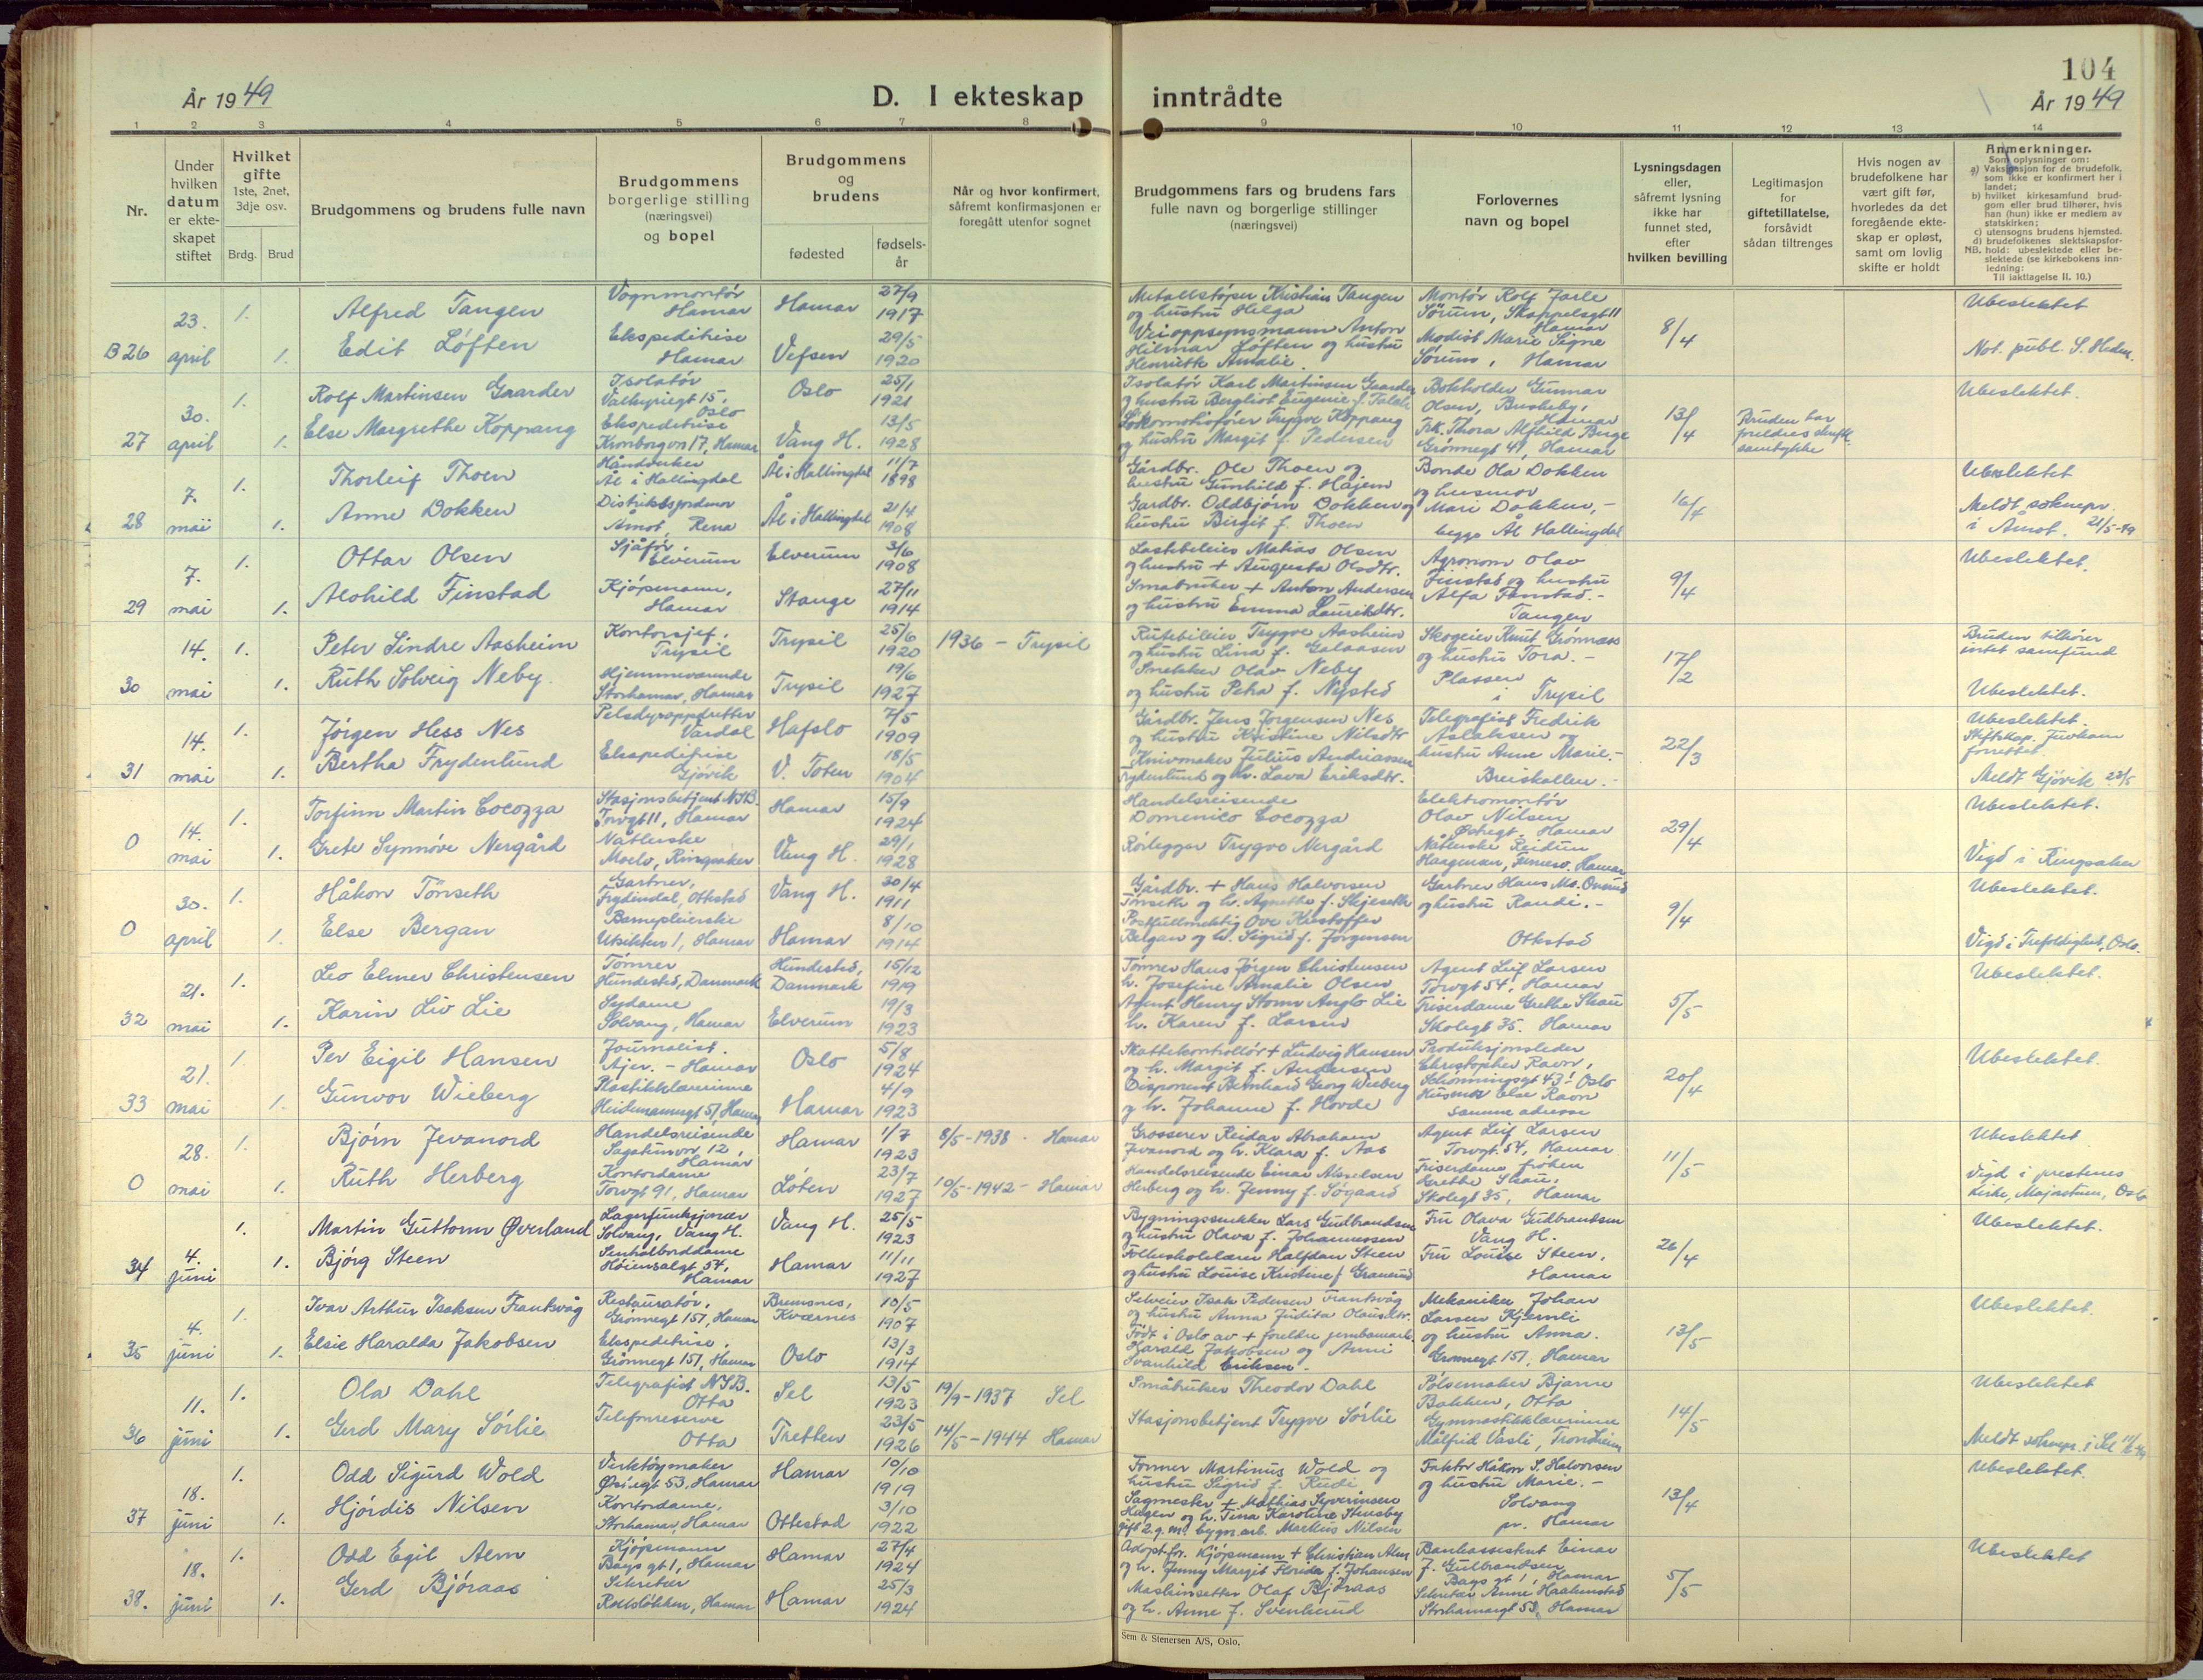 104
År 1949
D. I ekteskap inntrådte
År 1949
1 2 3 4 5 6 7 8 9 10 11 12 13 14
Nr.
Under hvilken datum er ekte-skapet stiftet
Hvilket gifte
1ste, 2net, 3dje osv.
Brdg. Brud
Brudgommens og brudens fulle navn
Brudgommens borgerlige stilling (næringsvei) og bopel
Brudgommens og brudens
fødested
fødsels-år
Når og hvor konfirmert, såfremt konfirmasjonen er foregått utenfor sognet
Brudgommens fars og brudens fars fulle navn og borgerlige stillinger (næringsvei)
Forlovernes navn og bopel
Lysningsdagen eller, såfremt lysning ikke har funnet sted, efter hvilken bevilling
Legitimasjon for giftetillatelse, forsåvidt sådan tiltrenges
Hvis nogen av brudefolkene har vært gift før, hvorledes da det foregående ekte-skap er opløst, samt om lovlig skifte er holdt
Anmerkninger.
Som oplysninger om:
a) Vaksinasjon for de brudefolk, som ikke er konfirmert her i landet;
b) hvilket kirkesamfund brud-gom eller brud tilhører, hvis han (hun) ikke er medlem av statskirken;
c) utensogns brudens hjemsted.
d) brudefolkenes slektskapsfor-hold: ubeslektede eller be-slektede (se kirkebokens inn-ledning:
NB.
Til iakttagelse II. 10.)
B 26 23. april 1. 1.
Alfred Tangen
Edit Løften
Vognmontør Hamar
Ekspeditrise Hamar
Hamar 27/9 1917
Vefsen 29/5 1920
Metallstøper Kristian Tangen og hustru Helga
Veioppsynsmann Anton Hilmar Løften og hustru Henriette Amalie.
Montør Rolf Jarle Sørum, Skappelsgt 11 Hamar
Modist Marie Signe Sørum, Hamar
8/4
Ubeslektet
Not. publ. S. Hedm.
27 30. april 1. 1.
Rolf Martinsen Gaarder
Else Margrethe Koppang
Isolatør Valkyriegt 15, Oslo
Ekspeditrise Kronborgvn 17, Hamar
Oslo 25/1 1921
Vang H. 13/5 1928
Isolatør Karl Martinsen Gaarder og hustru Bergliot Eugenie f.
Lokomotivfører Trygve Koppang og hustru Margit f. Pedersen
Bokholder Gunnar Olsen, Busheby, Hamar
Frk. Thora Alfhild Berge Grønnegt 41, Hamar
13/4
Bruden har foreldres skriftl. samtykke
Ubeslektet.
28 7. mai 1. 1.
Thorleif Thoen
Anne Dokken
Håndverker Ål i Hallingdal
Distriktsjordmor Åmot, Rena
Ål i Hallingdal 11/7 1898
Ål i Hallingdal 21/4 1908
Gårdbr. Ole Thoen og hustru Gunhild f. Hajem
Gardbr. Oddbjørn Dokken og hustru Birgit f. Thoen
Bonde Ola Dokken og husmor Mari Dokken, - begge Ål Hallingdal
16/4
Ubeslektet
Meldt soknepr. i Åmot. 21/5-49
29 7. mai 1. 1.
Ottar Olsen
Alohild Finstad
Sjåfør, Elverum
Kjøpmann, Hamar
Elverum 3/6 1908
Stange 27/11 1914
Lastebileier Matias Olsen og hustru + Augusta Olsdtr.
Småbruker + Anton Andersen og hustru Emma Lauritsdtr.
Agronom Olav Finstad og hustru Alfa Finstad. - Tangen
9/4
Ubeslektet.
30 14. mai 1. 1.
Peter Sindre Aasheim
Ruth Solveig Neby.
Kontorsjef, Trysil
Hjemmeværende Storhamar, Hamar
Trysil 25/6 1920
Trysil 19/6 1927
1936 - Trysil
Rutebileier Trygve Aasheim og hustru Lina f. Galaasen
Snekker Olav Neby og hustru Petra f. Nysted
Skogeier Knut Grønnæss og hustru Tora. - Plassen i Trysil
17/2
Bruden tilhører intet samfund
Ubeslektet.
31 14. mai 1. 1.
Jørgen Hess Nes
Bertha Frydenlund
Pelsdyroppdretter Vardal
Ekspeditrise Gjøvik
Hafslo 7/5 1909
V. Toten 18/5 1904
Gårdbr. Jens Jørgensen Nes og hustru Kristine Nilsdtr
Knivmaker Julius Andriassen Frydenlund og h. Lava Eriksdtr.
Telegrafist Fredrik Aslaksen og hustru Anne Marie. - Breiskallen. -
22/3
Ubeslektet.
Stiftskap. Juvkam forrettet.
Meldt Gjøvik 23/5
0 14. mai 1. 1.
Torfinn Martin Cocozza
Grete Synnøve Nergård
Stasjonsbetjent NSB. Torvgt 11, Hamar
Nåtlerske Moelv, Ringsaker
Hamar 15/9 1924
Vang H. 29/1 1928
Handelsreisende Domenico Cocozza
Rørlegger Trygve Nergård
Elektromontør Olav Nilsen Østregt. Hamar
Nåtlerske Reidun Haagensen, Hamar
29/4
Ubeslektet.
Vigd i Ringsaker
0 30. april 1. 1.
Håkon Tønseth
Else Bergan
Gartner, Frydendal, Ottestad
Barnepleierske Utsikten 1, Hamar
Vang H. 30/4 1911
Hamar 8/10 1914
Gårdbr. + Hans Halvorsen Tønseth og h. Agnethe f. Skjeseth
Postfullmektig Ove Kristoffer Bergan og h. Sigrid f. Jørgensen
Gartner Hans M. Onsrud og hustru Randi. - Ottestad
9/4
Ubeslektet.
Vigd i Trefoldighet, Oslo.
32 21. mai 1. 1.
Leo Elmer Christensen
Karin Liv Lie
Tømrer Hundested, Danmark
Sydame Solvang, Hamar
Hundested, Danmark 15/12 1919
Elverum 19/3 1923
Tømrer Hans Jørgen Christensen h. Josefine Amalie Olsen
Agent Henry Storm Anglo Lie h. Karen f. Larsen
Agent Leif Larsen Torvgt 54, Hamar
Friserdame Grethe Skau Skolegt 35. Hamar
5/5
Ubeslektet.
33 21. mai 1. 1.
Per Eigil Hansen
Gunvor Wieberg
Journalist. Ajer. - Hamar
Plastikklærerinne Heidmannsgt 51 Hamar
Oslo 5/8 1924
Hamar 4/9 1923
Skattekontrollør + Ludvig Hansen og h. Margit f. Andersen
Disponent Bernhard Georg Wieberg og h. Johanne f. Hovde
Produksjonsleder Christopher Ravn, Schønningsgt 43 Oslo
Husmor Else Ravn samme adresse
20/4
Ubeslektet.
0 28. mai 1. 1.
Bjørn Jevanord
Ruth Herberg
Handelsreisende Sagatunvn 12, Hamar
Kontordame Torvgt 91, Hamar
Hamar 1/7 1923
Løten 23/7 1927
8/5-1938 - Hamar
10/5-1942 - Hamar
Grosserer Reidar Abraham Jevanord og h. Klara f. Aas
Handelsreisende Einar Herberg og h. Jenny f. Søgaard
Agent Leif Larsen Torvgt. 54, Hamar
Friserdame frøken Grethe Skau, Skolegt 35, Hamar
11/5
Ubeslektet
Vigd i prestenes kirke, Majorstuen, Oslo
34 4. juni 1. 1.
Martin Guttorm Øverland
Bjørg Steen
Lagerfunksjonær Solvang, Vang H.
Sentralborddame Høiensalgt 54, Hamar
Vang H. 25/5 1923
Hamar 11/11 1927
Bygningssnekker Lars Gudbrandsen og hustru Olava f. Johannessen
Folkeskolelærer Halfdan Steen og hustru Louise Kristine f. Granerud
Fru Olava Gudbrandsen Vang H.
Fru Louise Steen, Hamar
26/4
Ubeslektet.
35 4. juni 1. 1.
Ivar Arthur Isaksen Frantsvåg
Elsie Haralda Jakobsen
Restauratør, Grønnegt 151, Hamar
Ekspeditrise, Grønnegt 151, Hamar
Bremsnes, Kværnes 10/5 1907
Oslo 13/3 1914
Selveier Isak Pedersen Frantsvåg og hustru Anna Judita Olausdtr.
Født i Oslo av + foreldre jernbanearb. Harald Jakobsen og Anni Svanhild Eriksen -
Mekaniker Johan Larsen Kjernli og hustru Anna. Grønnegt 151, Hamar
13/5
Ubeslektet.
36 11. juni 1. 1.
Ola Dahl
Gerd Mary Sørlie
Telegrafist NSB. Otta
Telefonreserve Otta
Sel 13/5 1923
Tretten 23/5 1926
19/9-1937 Sel
14/5-1944 Hamar
Småbruker Theodor Dahl
Stasjonsbetjent Trygve Sørlie
Pølsemaker Bjarne Bakken, Otta
Gymnastikklærerinne Målfrid Vasli, Trondheim
14/5
Ubeslektet
Meldt soknepr. i Sel 11/6 49
37 18. juni 1. 1.
Odd Sigurd Wold
Hjørdis Nilsen
Verktøymaker Østregt 53, Hamar
Kontordame, Storhamar, Hamar
Hamar 10/10 1919
Ottestad 3/10 1922
Former Martinus Wold og hustru Sigrid f. Rudi
Sagmester + Mathias Syverinsen Haugen og h. Tina Karoline Stensby gift 2. g. m. bygn. arb. Markus Nilsen
Faktor Håkon S. Halvorsen og hustru Marie. - Solvang pr. Hamar
13/4
Ubeslektet.
38. 18. juni 1. 1.
Odd Egil Alm
Gerd Bjøraas
Kjøpmann Bagsgt 1, Hamar
Sekretær Rollsløkken, Hamar
Hamar 27/4 1924
Hamar 25/3 1924
Adopt.for. Kjøpmann + Christian Alm og h. Jenny Margit Florida f. Johansen
Maskinsetter Olaf Bjøraas og h. Anne f. Svenkerud
Bankassistent Einar F. Gulbrandsen Bagsgt 1, Hamar
Sekretær Anne Haakenstad Storhamargt 53, Hamar
5/5
Ubeslektet
Sem & Stenersen A/S, Oslo.